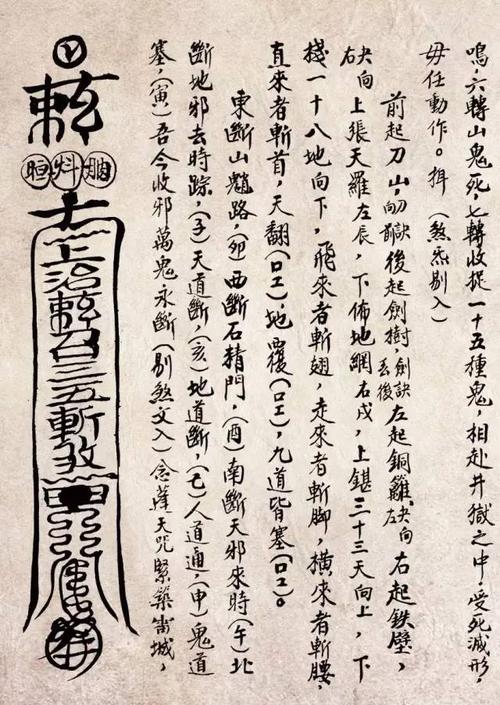 鳴六轉山鬼死,七轉收捉一十五種鬼,相赴井獄之中,受死滅形,
毋任動作。揖(煞炁剔入)
前起刀山,刀訣向前後起劍樹,劍訣丟後左起銅籬,訣向左右起鉄壁,
訣向右上張天羅左辰,下佈地網右戌,上鎮三十三天向上,下
棧一十八地向下,飛來者斬翅,走來者斬脚,橫來者斬腰,
直來者斬首,天翻(口工),地覆(口工),九道皆塞(口工)。
東斷山魈路,(卯)西斷石精門,(酉)南斷天邪來時(午)北
斷地邪去時踪,(子)天道斷,(亥)地道斷,(己)人道通,(申)鬼道
塞,(寅)吾今收邪萬鬼永斷(剔煞文入)念蓬天咒緊築甯城,
上治
召三五斬煞